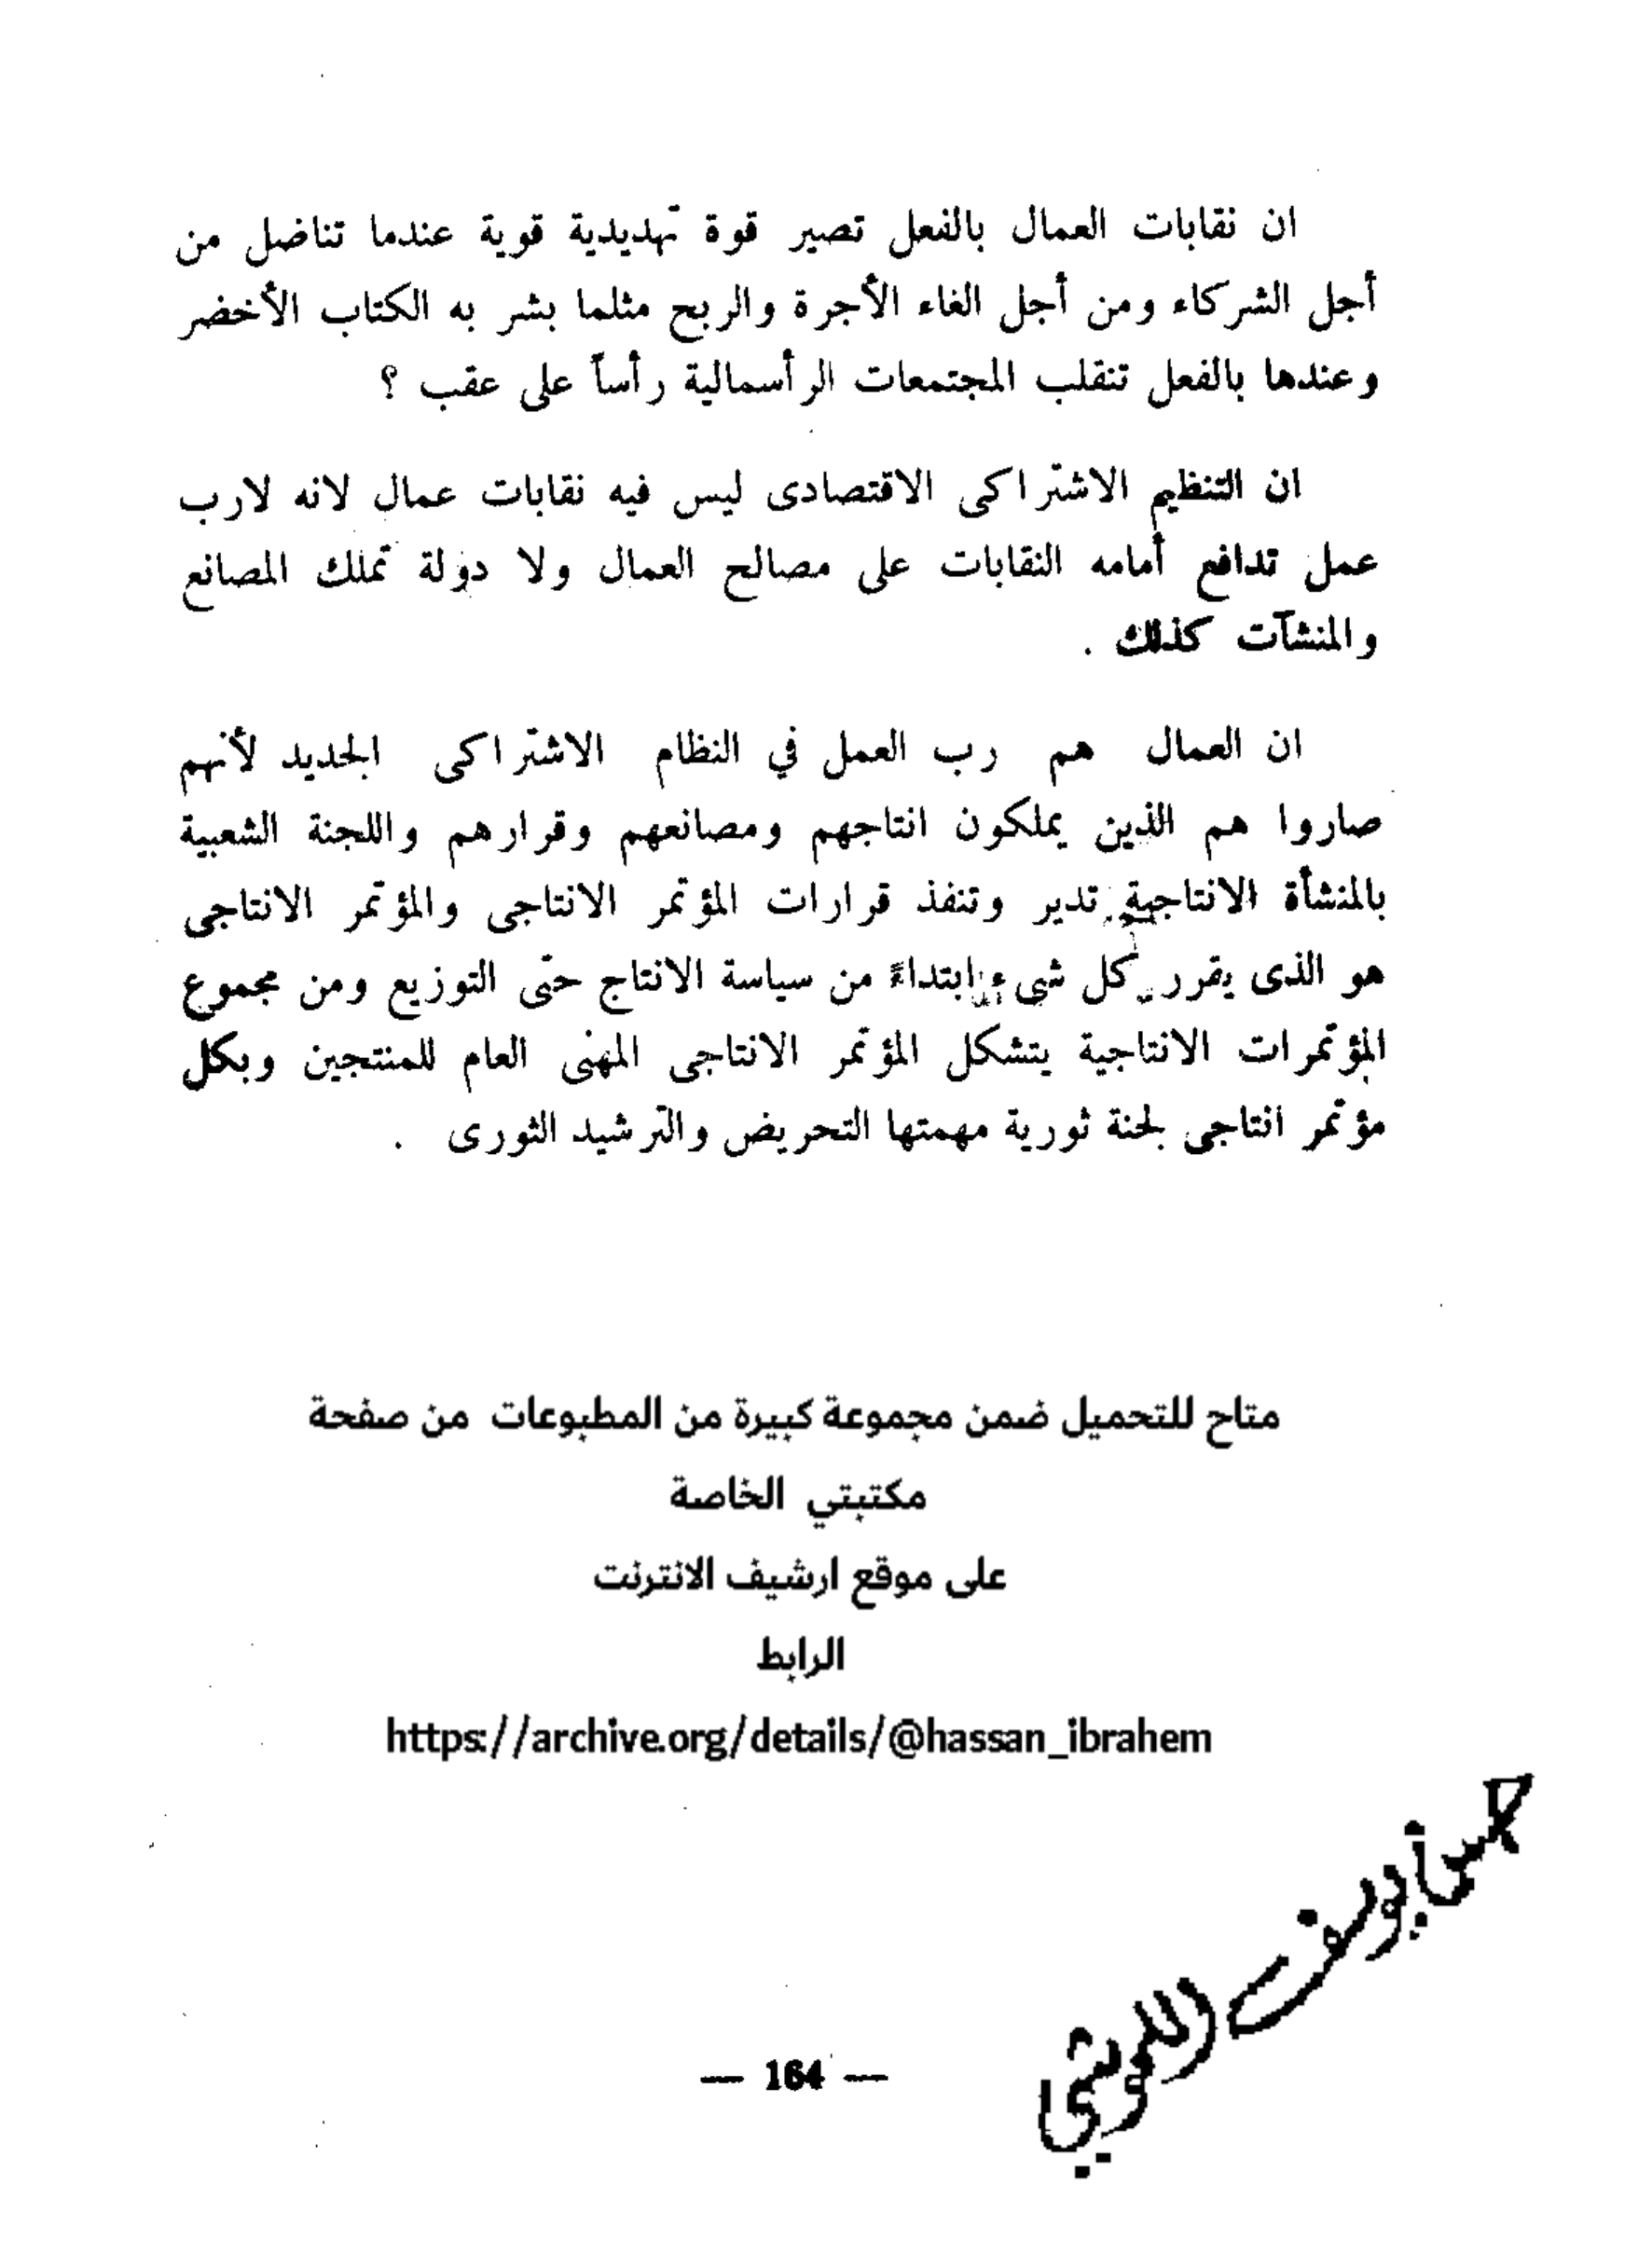 ان نقابات العمال بالفعل تصير قوة تهديدية قوية عندما تناضل من
أجل الشركاء ومن أجل الغاء الأجرة والربح مثلما بشر به الكتاب الأخضر
وعندها بالفعل تنقلب المجتمعات الرأسمالية رأساً على عقب ؟
ان التنظيم الاشتراكى الاقتصادى ليس فيه نقابات عمال لانه لارب
عمل تدافع أمامه النقابات على مصالح العمال ولا دولة تملك المصانع
والمنشآت كذلك .
ان العمال هم رب العمل في النظام الاشتراكى الجديد لأنهم
صاروا هم الذين يملكون انتاجهم ومصانعهم وقرارهم واللجنة الشعبية
بالمنشأة الانتاجية تدير وتنفذ قرارات المؤتمر الانتاجى والمؤتمر الانتاجى
هو الذى يقرر كل شىء ابتداءً من سياسة الانتاج حتى التوزيع ومن مجموع
المؤتمرات الانتاجية يتشكل المؤتمر الانتاجى المهنى العام للمنتجين وبكل
مؤتمر انتاجى لجنة ثورية مهمتها التحريض والترشيد الثورى .
متاح للتحميل ضمن مجموعة كبيرة من المطبوعات من صفحة
مكتبتي الخاصة
على موقع ارشيف الانترنت
الرابط
https://archive.org/details/@hassan_ibrahem
— 164 —